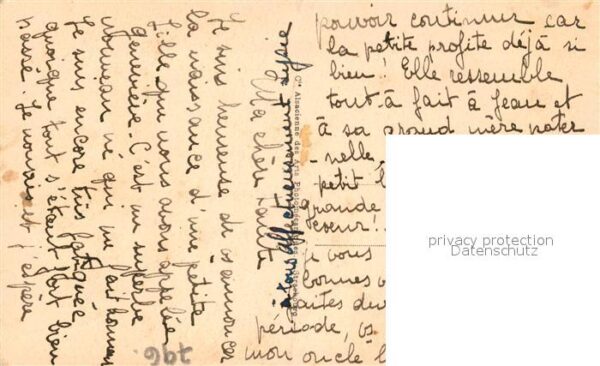 Ma chère tante
Je suis heureuse de vs annoncer
la naissance d'une petite
fille que nous avons appelée
Geneviève. C'est un superbe
nouveau né qui me fait honneur
Je suis encore très fatiguée
quoique tout s'étant fort bien
passé. Je nourris et j'espère
pouvoir continuer car
la petite profite déjà si
bien! Elle ressemble
tout à fait à Jean et
à sa grand'mère pater
-nelle.
petit
grande
coeur!
je vous
bonnes
faites du
période, vs
mon oncle
à tous affectueusement
Cie Alsacienne des Arts Photomécaniques, Strasbourg
796
privacy protection
Datenschutz